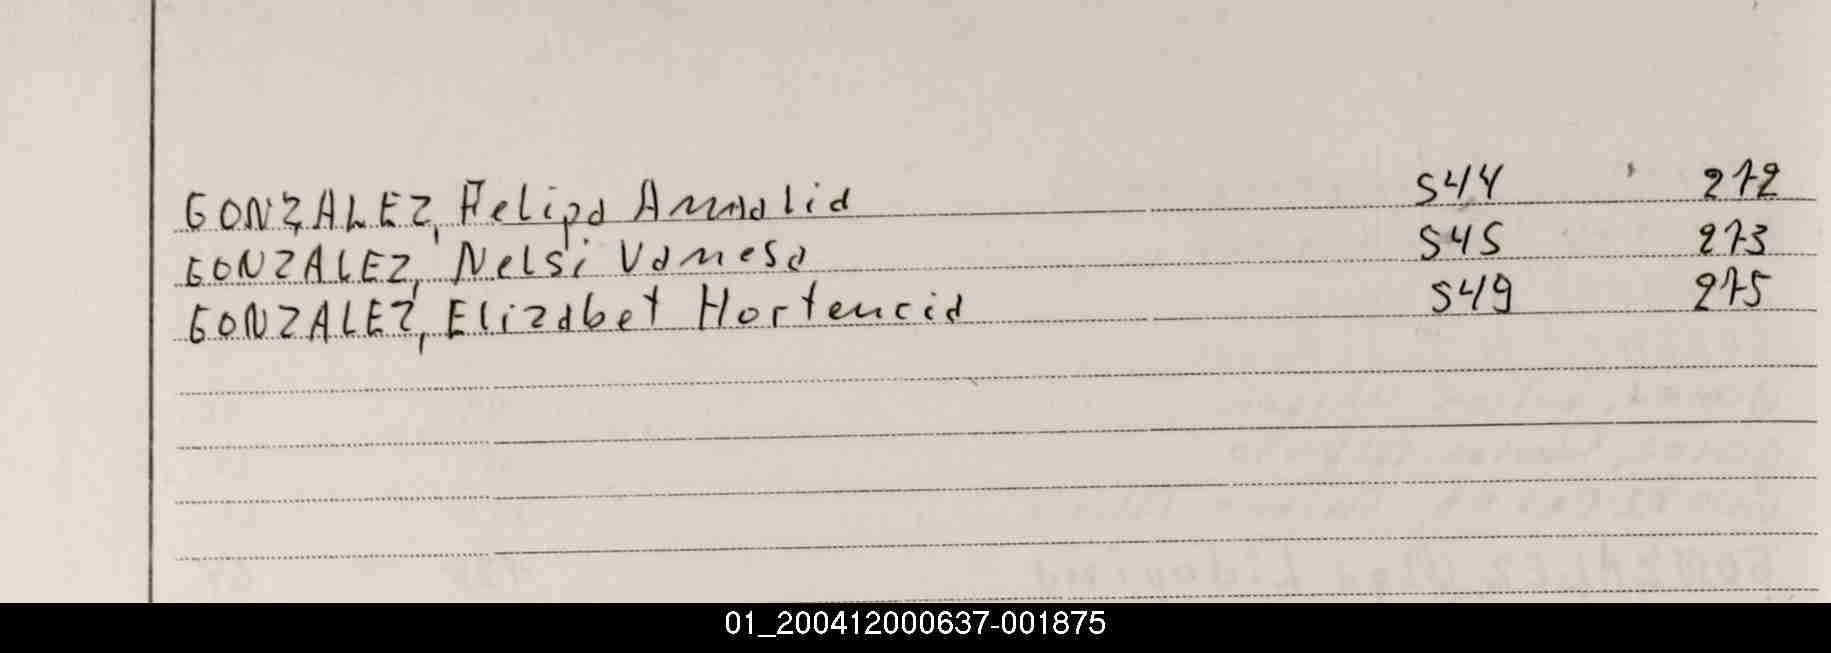 GONZALEZ, Felipa Amalia 544 272
GONZALEZ, Nelsi Vanesa 545 273
GONZALEZ, Elizabet Hortencia 549 275
01_200412000637-001875